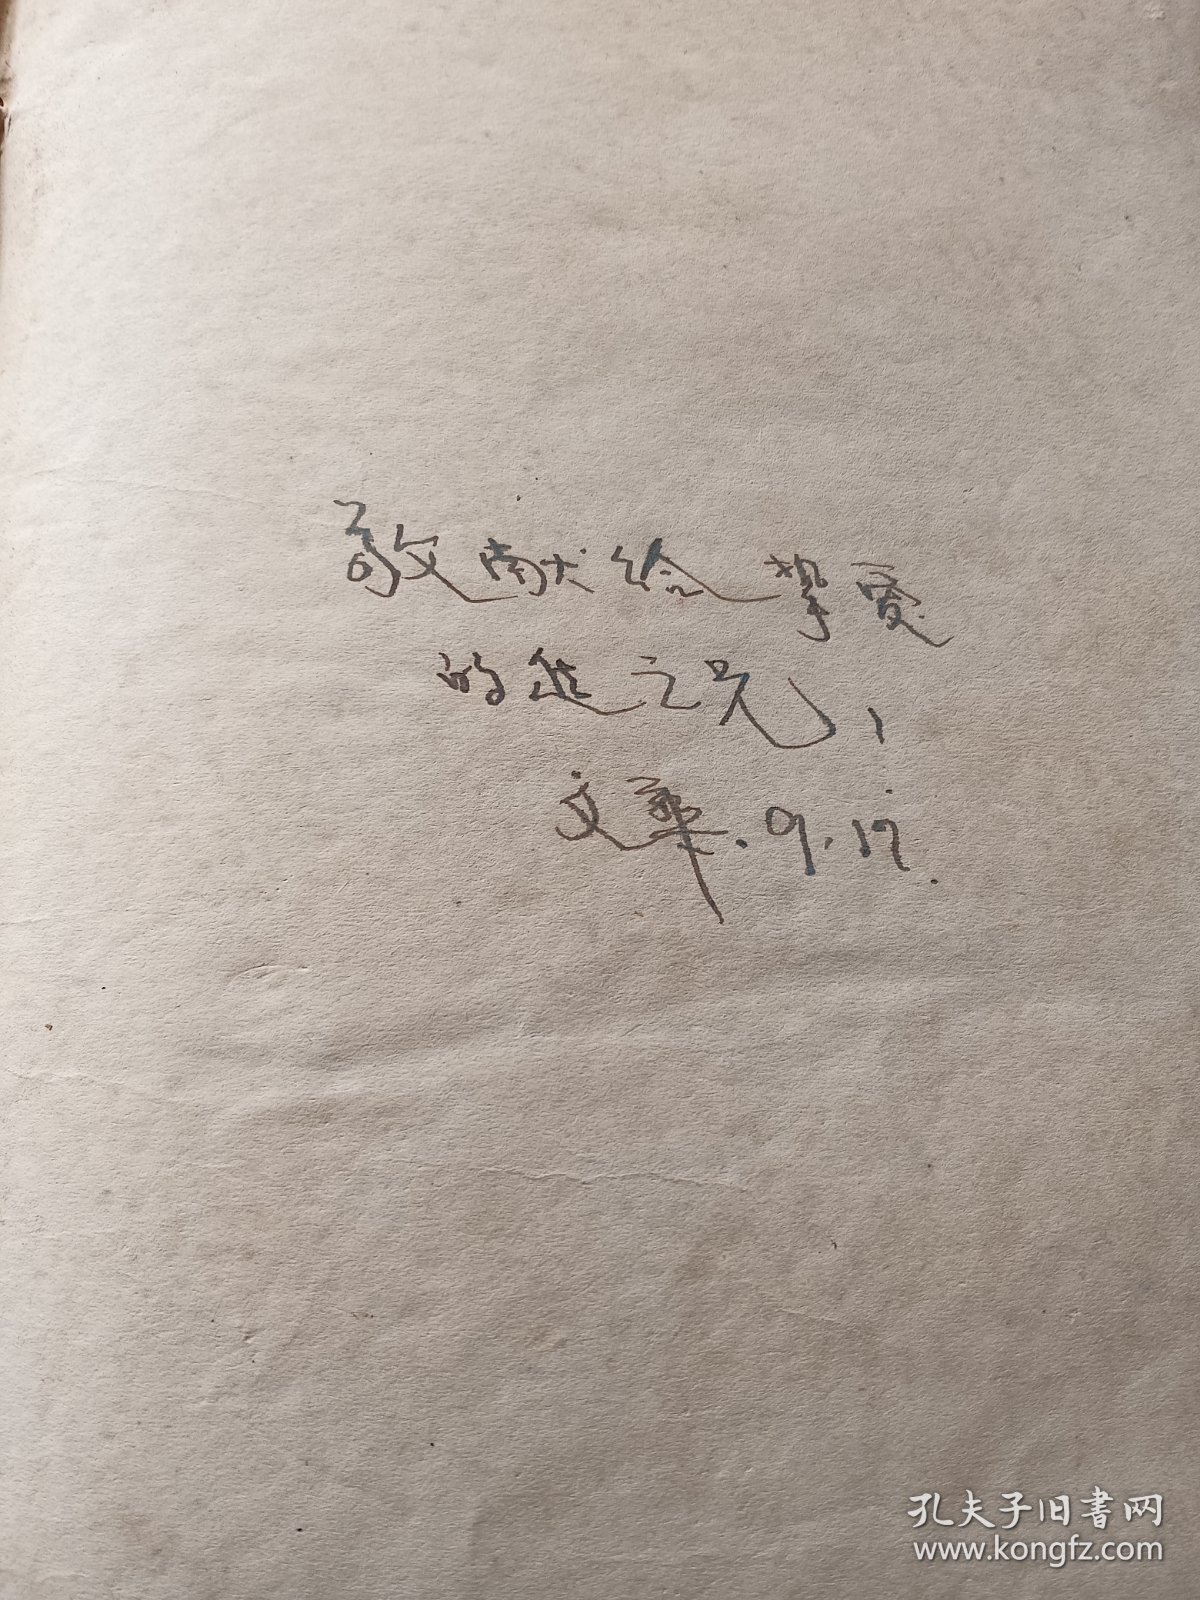 敬献给挚爱
的延之兄，
文華. 9.17.
孔夫子旧書网
www.kongfz.com